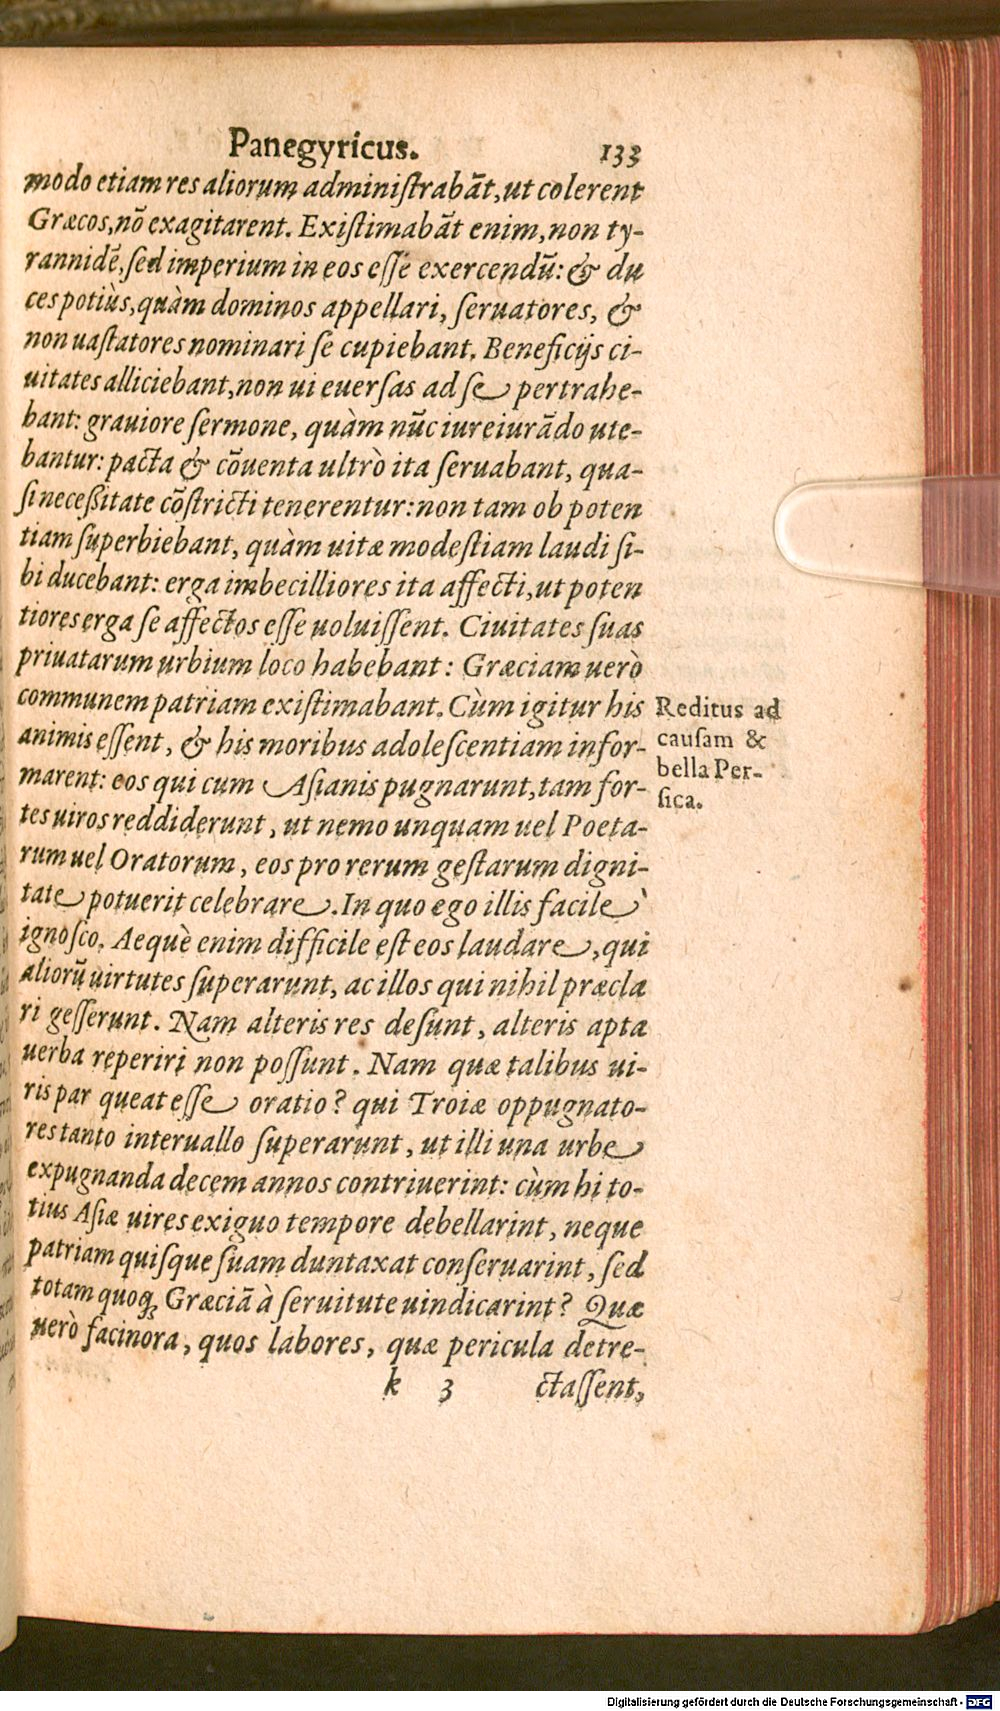 Panegyricus. 133
modo etiam res aliorum adminiſtrabãt, ut colerent
Græcos, nõ exagitarent. Exiſtimabãt enim, non ty-
rannidẽ, ſed imperium in eos eſſe exercendũ: & du
ces potiùs, quàm dominos appellari, ſeruatores, &
non uaſtatores nominari ſe cupiebant. Beneficijs ci-
uitates alliciebant, non ui euerſas ad ſe pertrahe-
bant: grauiore ſermone, quàm nũc iureiurãdo ute-
bantur: pacta & cõuenta ultrò ita ſeruabant, qua-
ſi neceßitate cõſtricti tenerentur: non tam ob poten
tiam ſuperbiebant, quàm uitæ modeſtiam laudi ſi-
bi ducebant: erga imbecilliores ita affecti, ut poten
tiores erga ſe affectos eſſe uoluiſſent. Ciuitates ſuas
priuatarum urbium loco habebant: Græciam uerò
communem patriam exiſtimabant. Cùm igitur his
animis eſſent, & his moribus adoleſcentiam infor-
marent: eos qui cum Aſianis pugnarunt, tam for-
tes uiros reddiderunt, ut nemo unquam uel Poeta-
rum uel Oratorum, eos pro rerum geſtarum digni-
tate potuerit celebrare. In quo ego illis facilè
ignoſco. Aequè enim difficile eſt eos laudare, qui
aliorũ uirtutes ſuperarunt, ac illos qui nihil præcla
ri geſſerunt. Nam alteris res deſunt, alteris apta
uerba reperiri non poſſunt. Nam quæ talibus ui-
ris par queat eſſe oratio? qui Troiæ oppugnato-
res tanto interuallo ſuperarunt, ut illi una urbe
expugnanda decem annos contriuerint: cùm hi to-
tius Aſiæ uires exiguo tempore debellarint, neque
patriam quiſque ſuam duntaxat conſeruarint, ſed
totam quoq; Græciã à ſeruitute uindicarint? Quæ
uerò facinora, quos labores, quæ pericula detre-
k 3 ctaſſent,
Reditus ad
cauſam &
bella Per-
ſica.
Digitalisierung gefördert durch die Deutsche Forschungsgemeinschaft - DFG